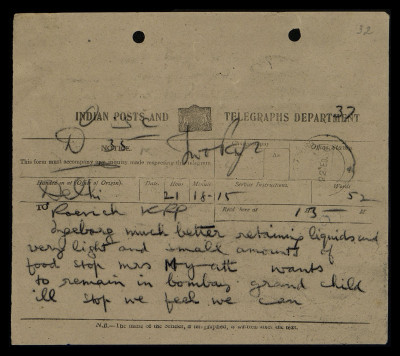 32
INDIAN POSTS AND TELEGRAPHS DEPARTMENT
37
D 35
NOTICE.
This form must accompany any inquiry made respecting this telegram.
Handed in at (Office of Origin). Date. Hour. Minute. Service Instructions. Words.
Delhi 21 18-15 52
TO Roerich KPP Recd. here at
Ingeborg much better retaining liquids and
very light and small amounts of
food stop mrs Myatt wants
to remain in bombay grand child
ill stop we feel we can
N.B.—The name of the sender, if telegraphed, is written after the text.